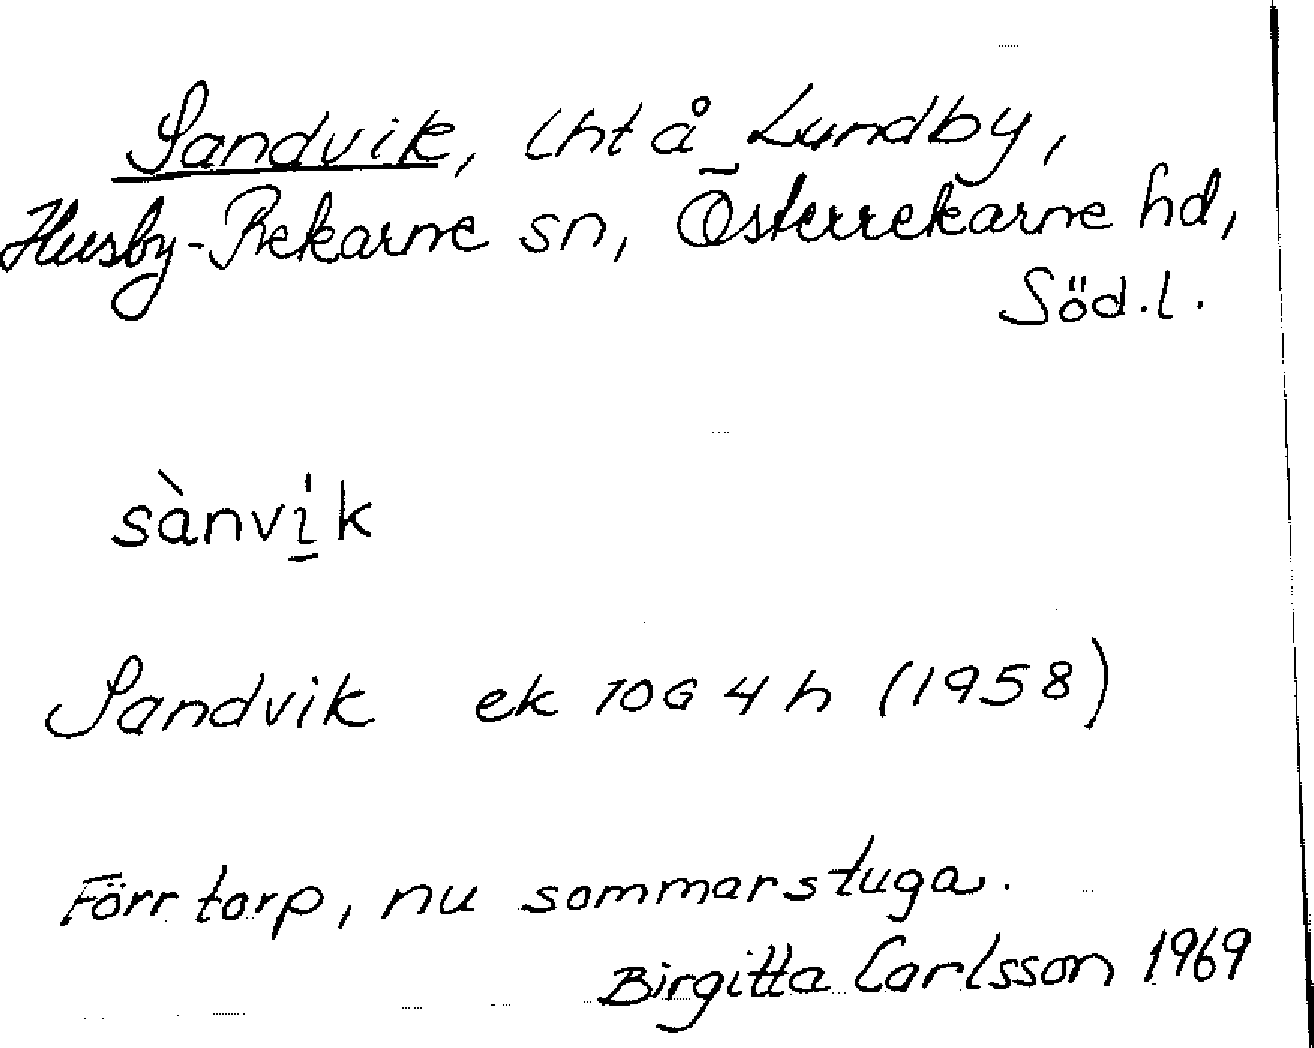 Sandvik, lht å Lundby,
Husby-Rekarne sn, Österrekarne hd,
Söd.l.
sànvi̲k
Sandvik ek 10G 4h (1958)
Förr torp, nu sommarstuga.
Birgitta Carlsson 1969